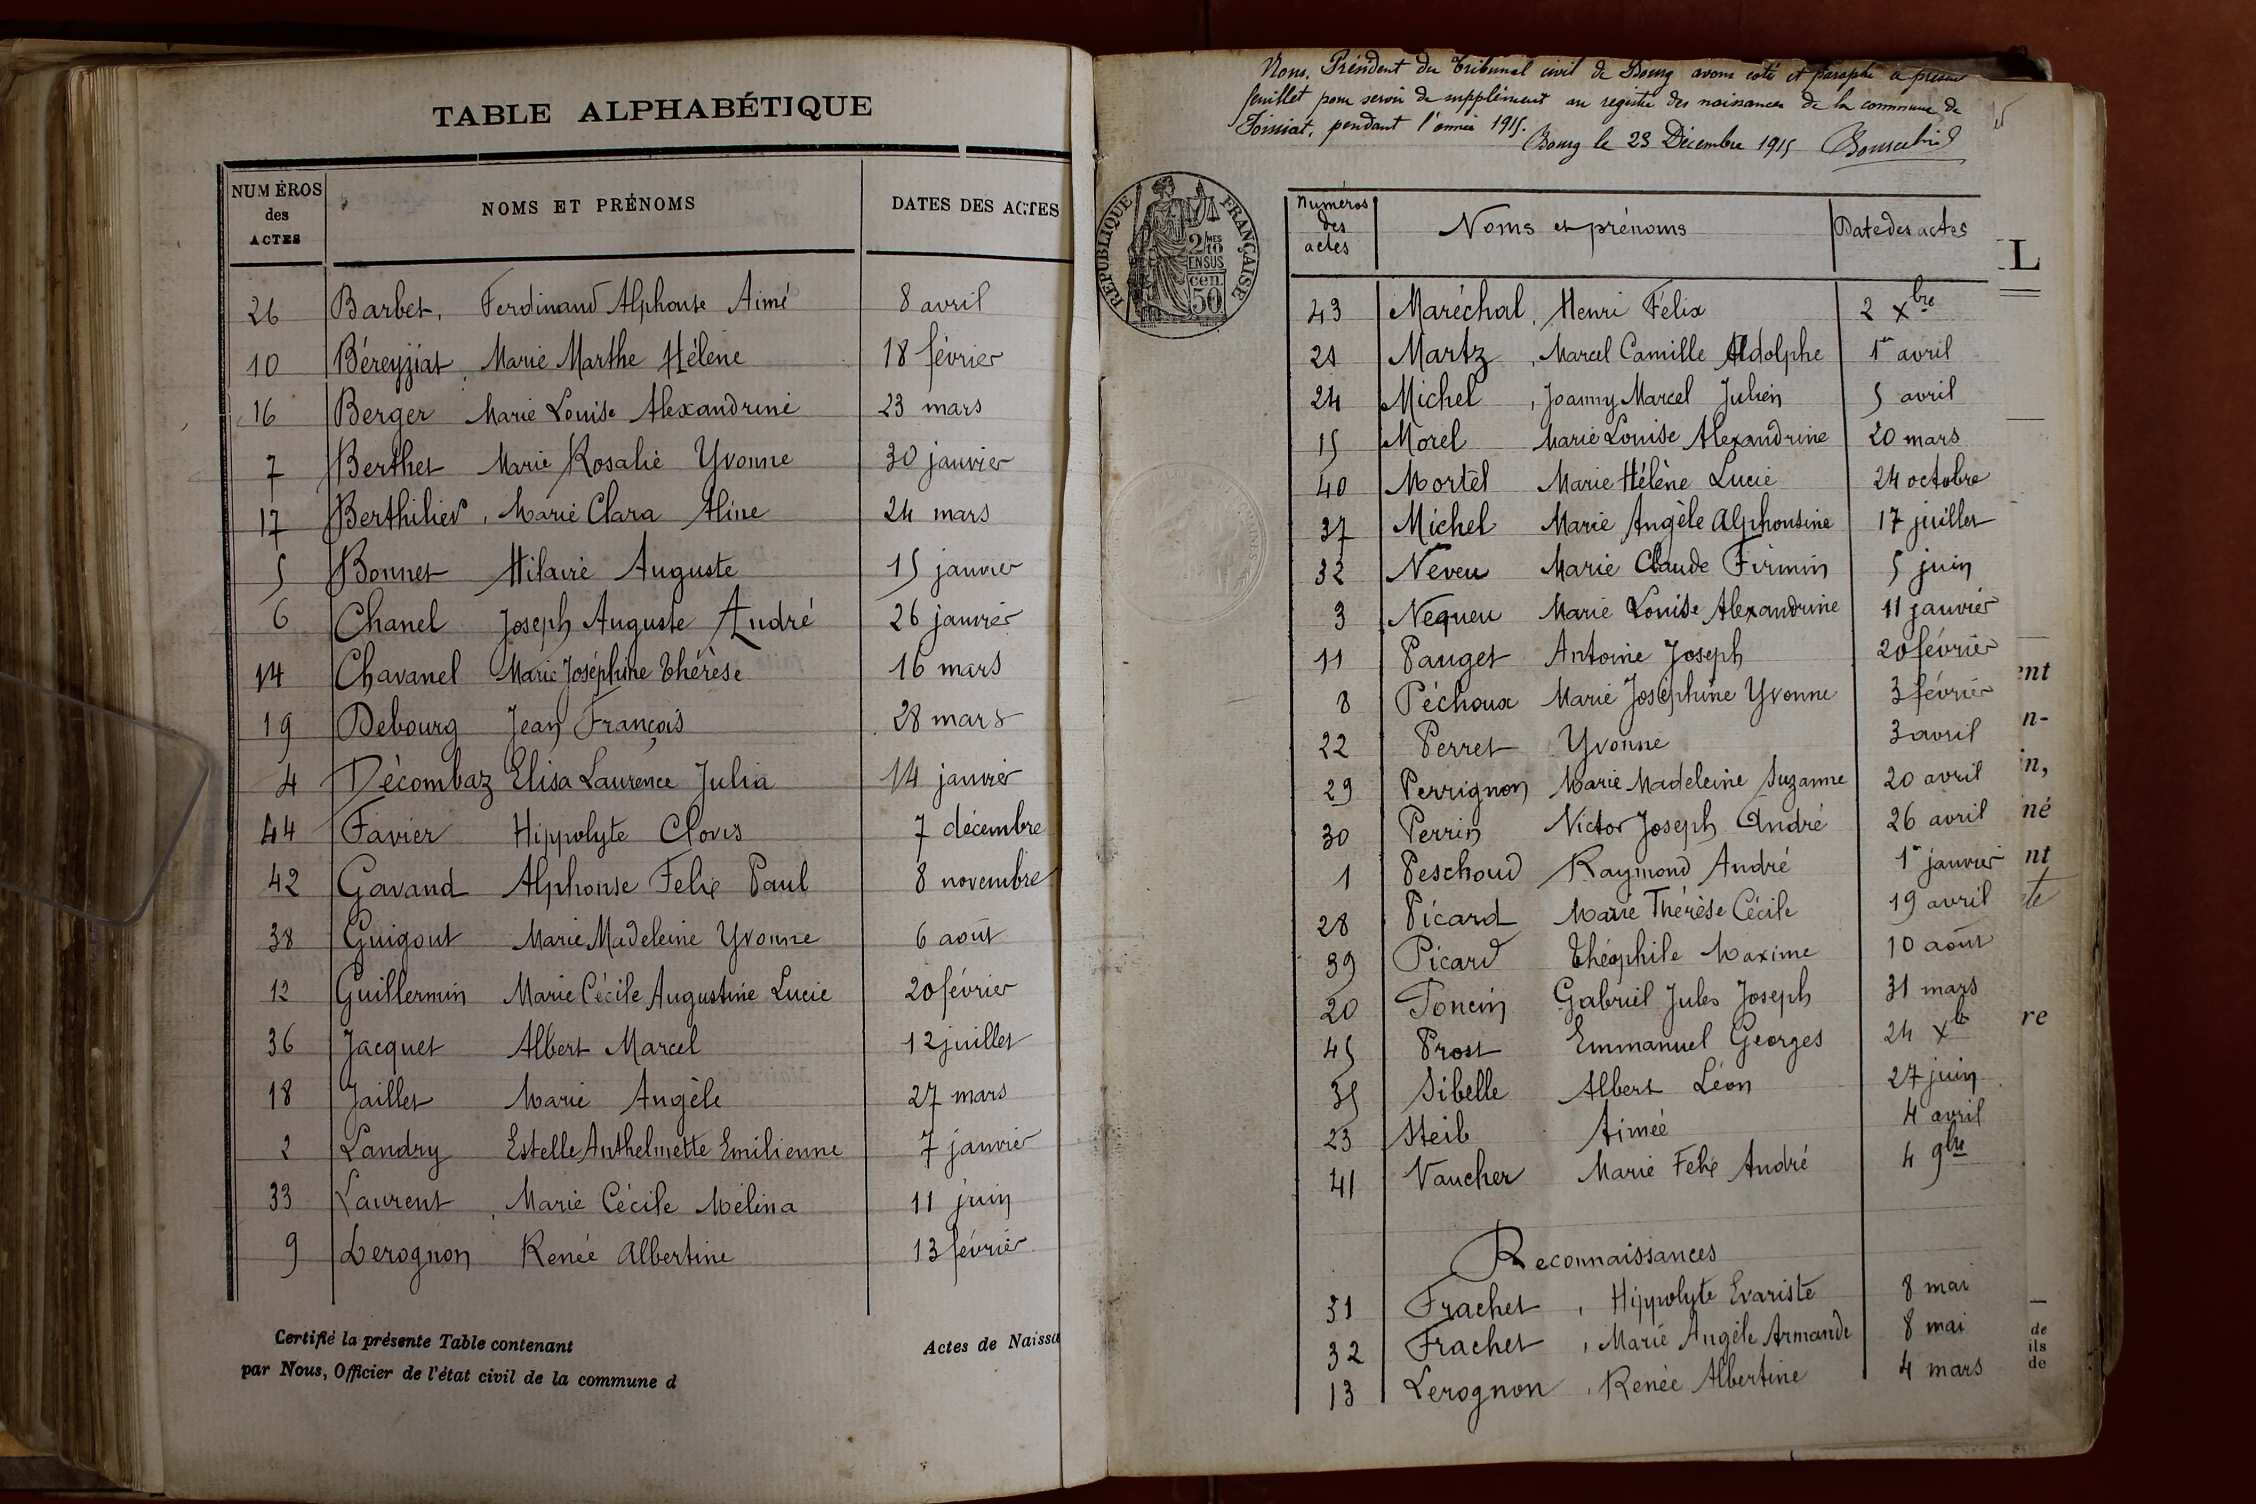 TABLE ALPHABÉTIQUE
NUMÉROS des ACTES NOMS ET PRÉNOMS DATES DES ACTES
26 Barbet, Ferdinand Alphonse Aimé 8 avril
10 Béreyziat, Marie Marthe Hélène 18 février
16 Berger Marie Louise Alexandrine 23 mars
7 Berthet Marie Rosalie Yvonne 30 janvier
17 Berthilier, Marie Clara Aline 24 mars
5 Bonnet Hilaire Auguste 15 janvier
6 Chanel Joseph Auguste André 26 janvier
14 Chavanel Marie Joséphine Thérèse 16 mars
19 Debourg Jean François 28 mars
4 Décombaz Elisa Laurence Julia 14 janvier
44 Favier Hippolyte Clovis 7 décembre
42 Gavand Alphonse Felix Paul 8 novembre
38 Guigout Marie Madeleine Yvonne 6 août
12 Guillermin Marie Cécile Augustine Lucie 20 février
36 Jacquet Albert Marcel 12 juillet
18 Jaillet Marie Angèle 27 mars
2 Landry Estelle Anthelmette Emilienne 7 janvier
33 Laurent, Marie Cécile Mélina 11 juin
9 Lerognon Renée Albertine 13 février
Certifié la présente Table contenant Actes de Naissa
par Nous, Officier de l'état civil de la commune d
Nous, Président du Tribunal civil de Bourg avons coté et paraphé le présent
feuillet pour servir de supplément au registre des naissances de la commune de
Foissiat, pendant l'année 1915.
Bourg le 23 Décembre 1915
RÉPUBLIQUE FRANÇAISE
2/10 MES
EN SUS
50 cen
Numéros des actes Noms et prénoms Date des actes
L
43 Maréchal, Henri Félix 2 Xbre
21 Martz, Marcel Camille Adolphe 1er avril
24 Michel, Joanny Marcel Julien 5 avril
15 Morel Marie Louise Alexandrine 20 mars
40 Mortel Marie Hélène Lucie 24 octobre
37 Michel Marie Angèle Alphonsine 17 juillet
32 Neveu Marie Claude Firmin 5 juin
3 Nequeu Marie Louise Alexandrine 11 janvier
11 Pauget Antoine Joseph 20 février
8 Péchoux Marie Joséphine Yvonne 3 février
22 Perret Yvonne 3 avril
29 Perrignon Marie Madeleine Suzanne 20 avril
30 Perrin Victor Joseph André 26 avril
1 Peschoud Raymond André 1er janvier
28 Picard Marie Thérèse Cécile 19 avril
39 Picard Théophile Maxime 10 août
20 Poncin Gabriel Jules Joseph 31 mars
45 Prost Emmanuel Georges 24 Xbre
35 Sibelle Albert Léon 27 juin
23 Steib Aimée 4 avril
41 Vaucher Marie Felix André 4 9bre
Reconnaissances
31 Frachet, Hippolyte Evariste 8 mai
32 Frachet, Marie Angèle Armande 8 mai
13 Lerognon, Renée Albertine 4 mars
ent
n-
in,
né
nt
re
de
ils
de